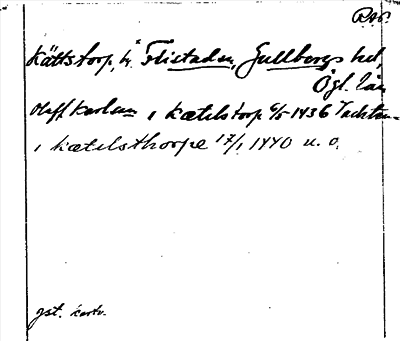 R.A.P.
Kättstorp, h. Flistaden, Gullbergs hd,
Ögl. län
Olaff Karlsson i Kætilstorp 6/5 1436 Vadsten-
i Kætilsthorpe 17/1 1440 u. o.
gst. kartv.